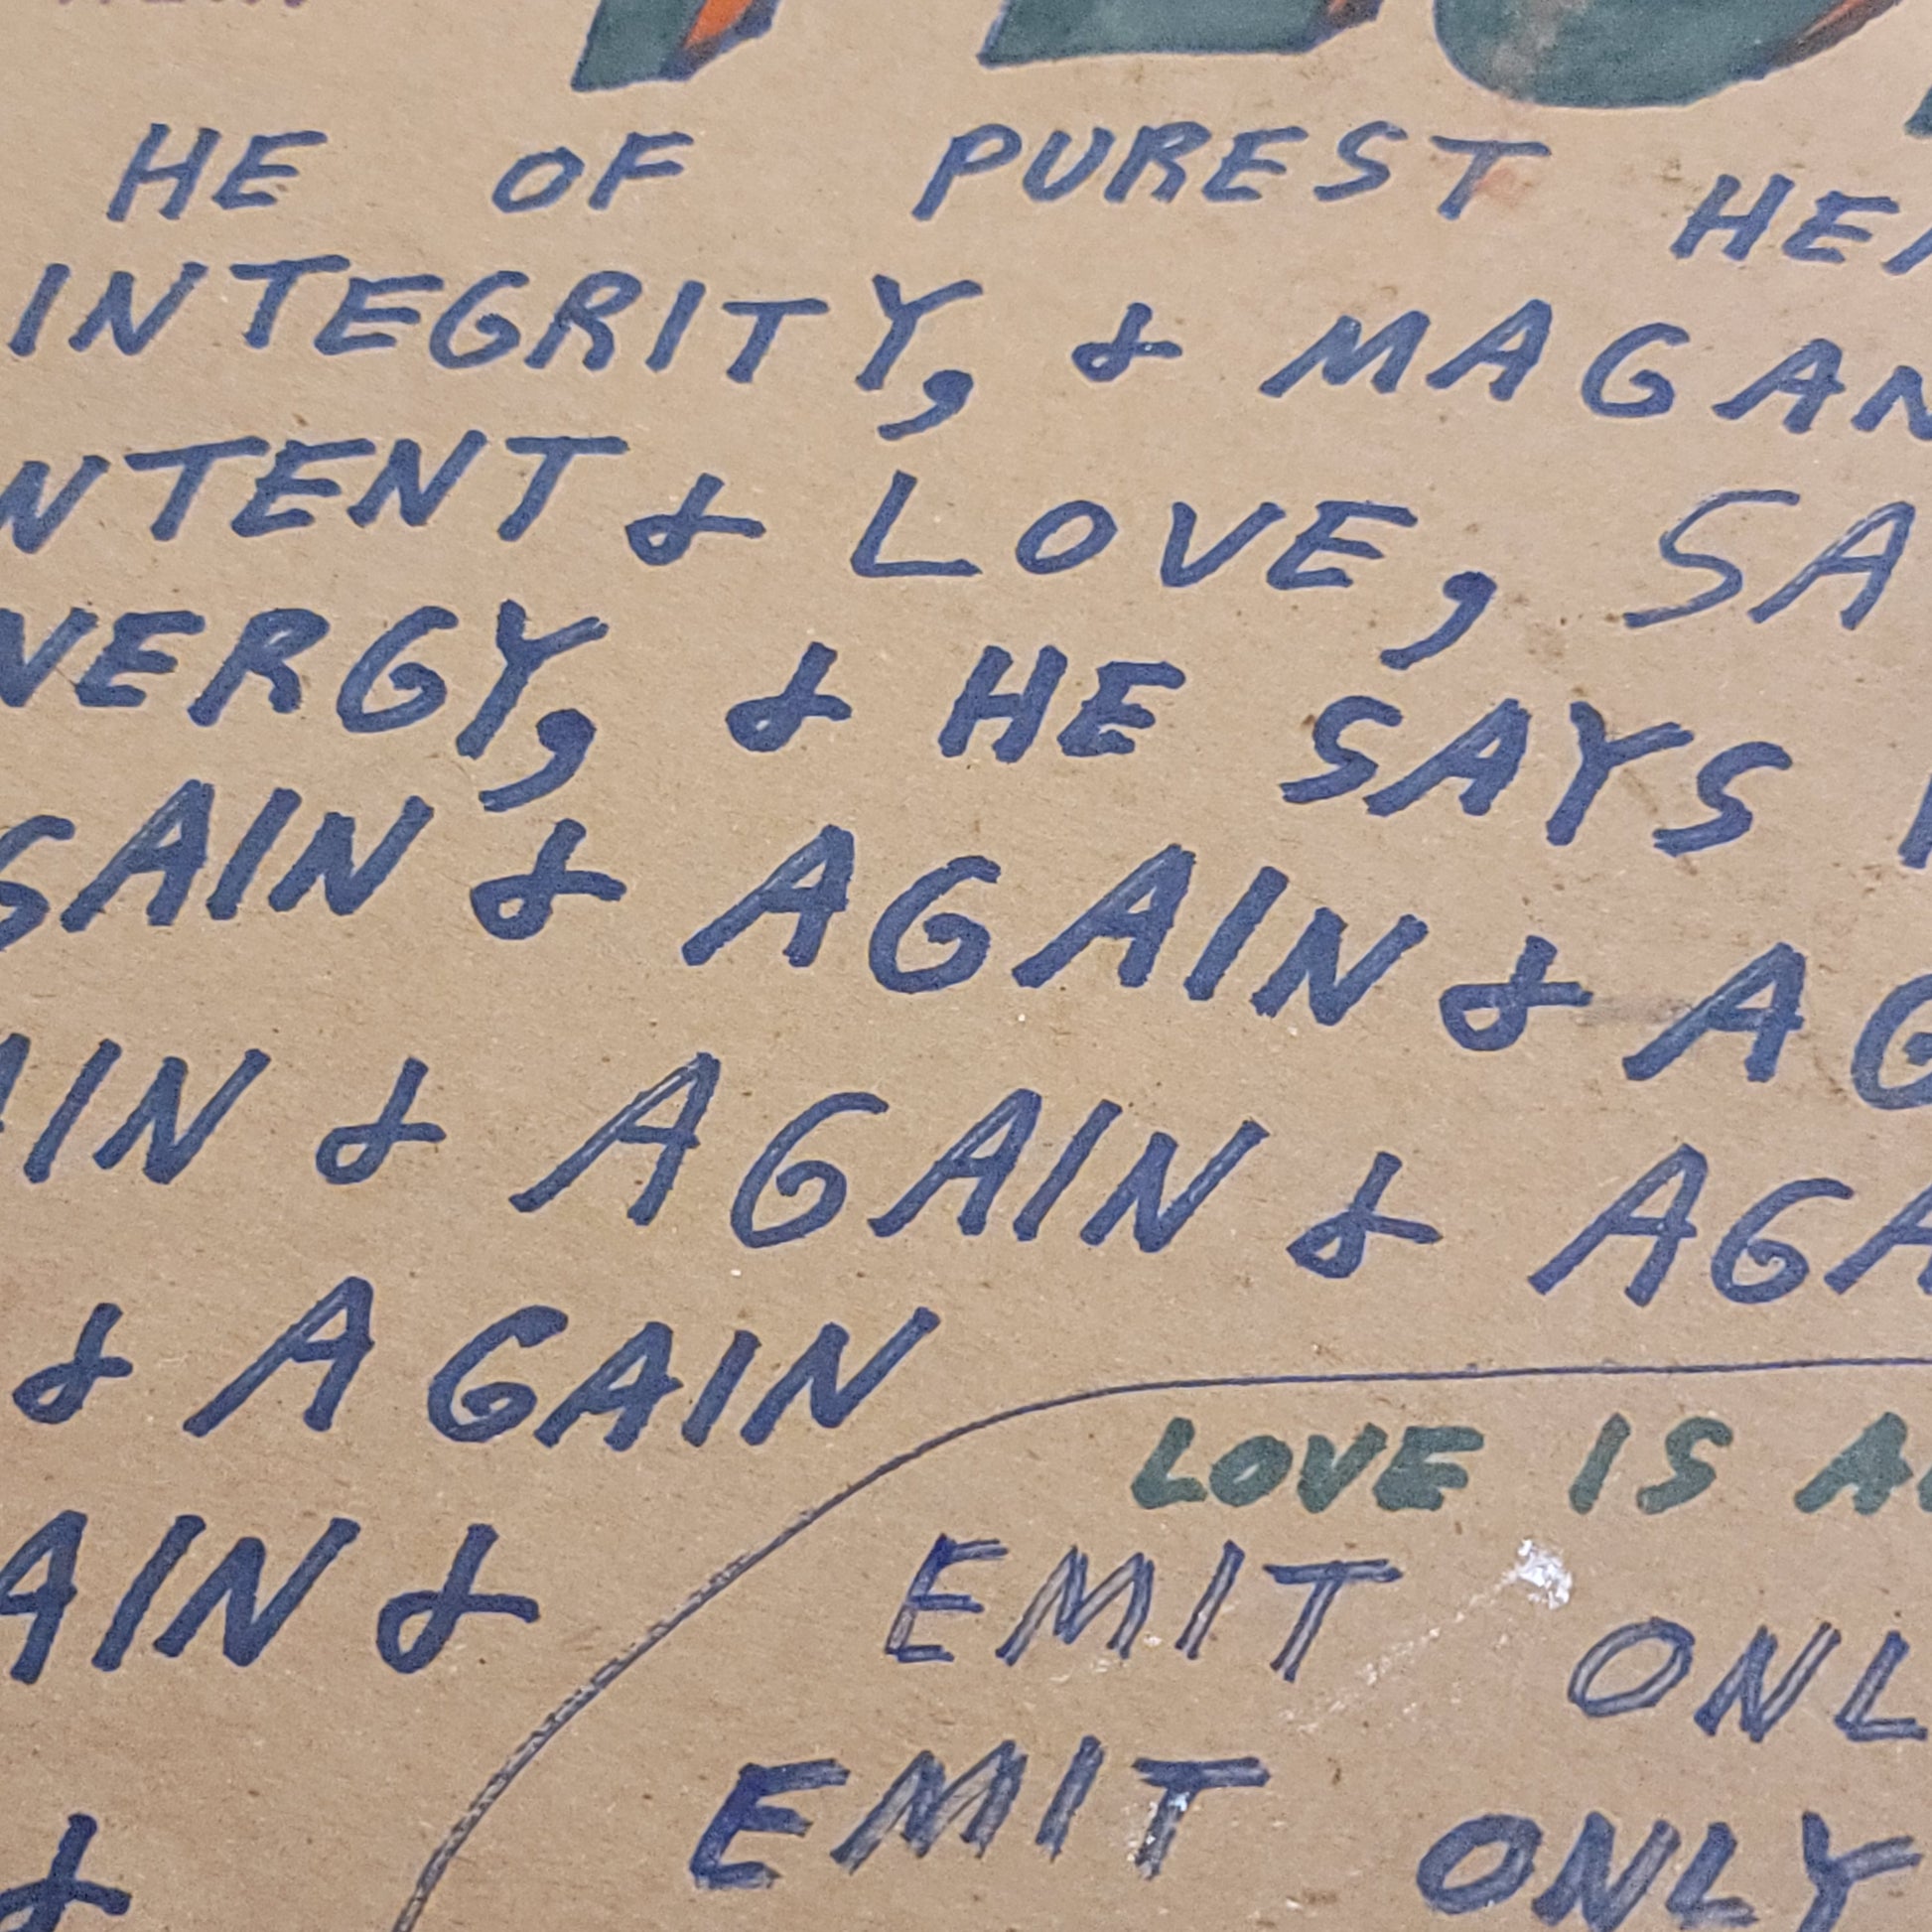 HE OF PUREST HEA
INTEGRITY, & MAGAN
NTENT & LOVE, SA
NERGY, & HE SAYS
GAIN & AGAIN & AG
AIN & AGAIN & AGA
& AGAIN
LOVE IS
AIN &
EMIT ONL
EMIT ONLY
&